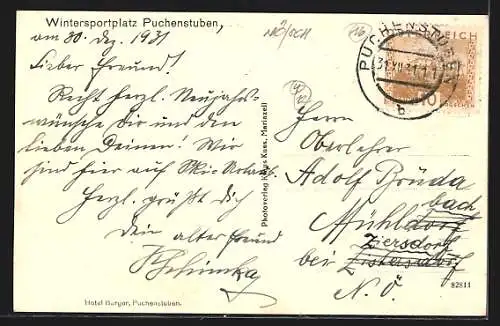 Wintersportplatz Puchenstuben,
am 30. Dez. 1931
Lieber Freund!
Recht herzl. Neujahrs-
wünsche Dir und den
lieben Deinen! Wir
sind hier auf Ski-Urlaub.
Herzl. grüßt dich
Dein alter Freund
Hotel Burger, Puchenstuben.
Photoverlag Kuss, Mariazell
NÖ/OCH
16
PUCHENSTUBEN
31.XII.31
b
REICH
10
Herrn
Oberlehrer
Adolf Brüda
Mühldorf
bach
Ziersdorf
bei Zistersdorf
N.Ö.
82811